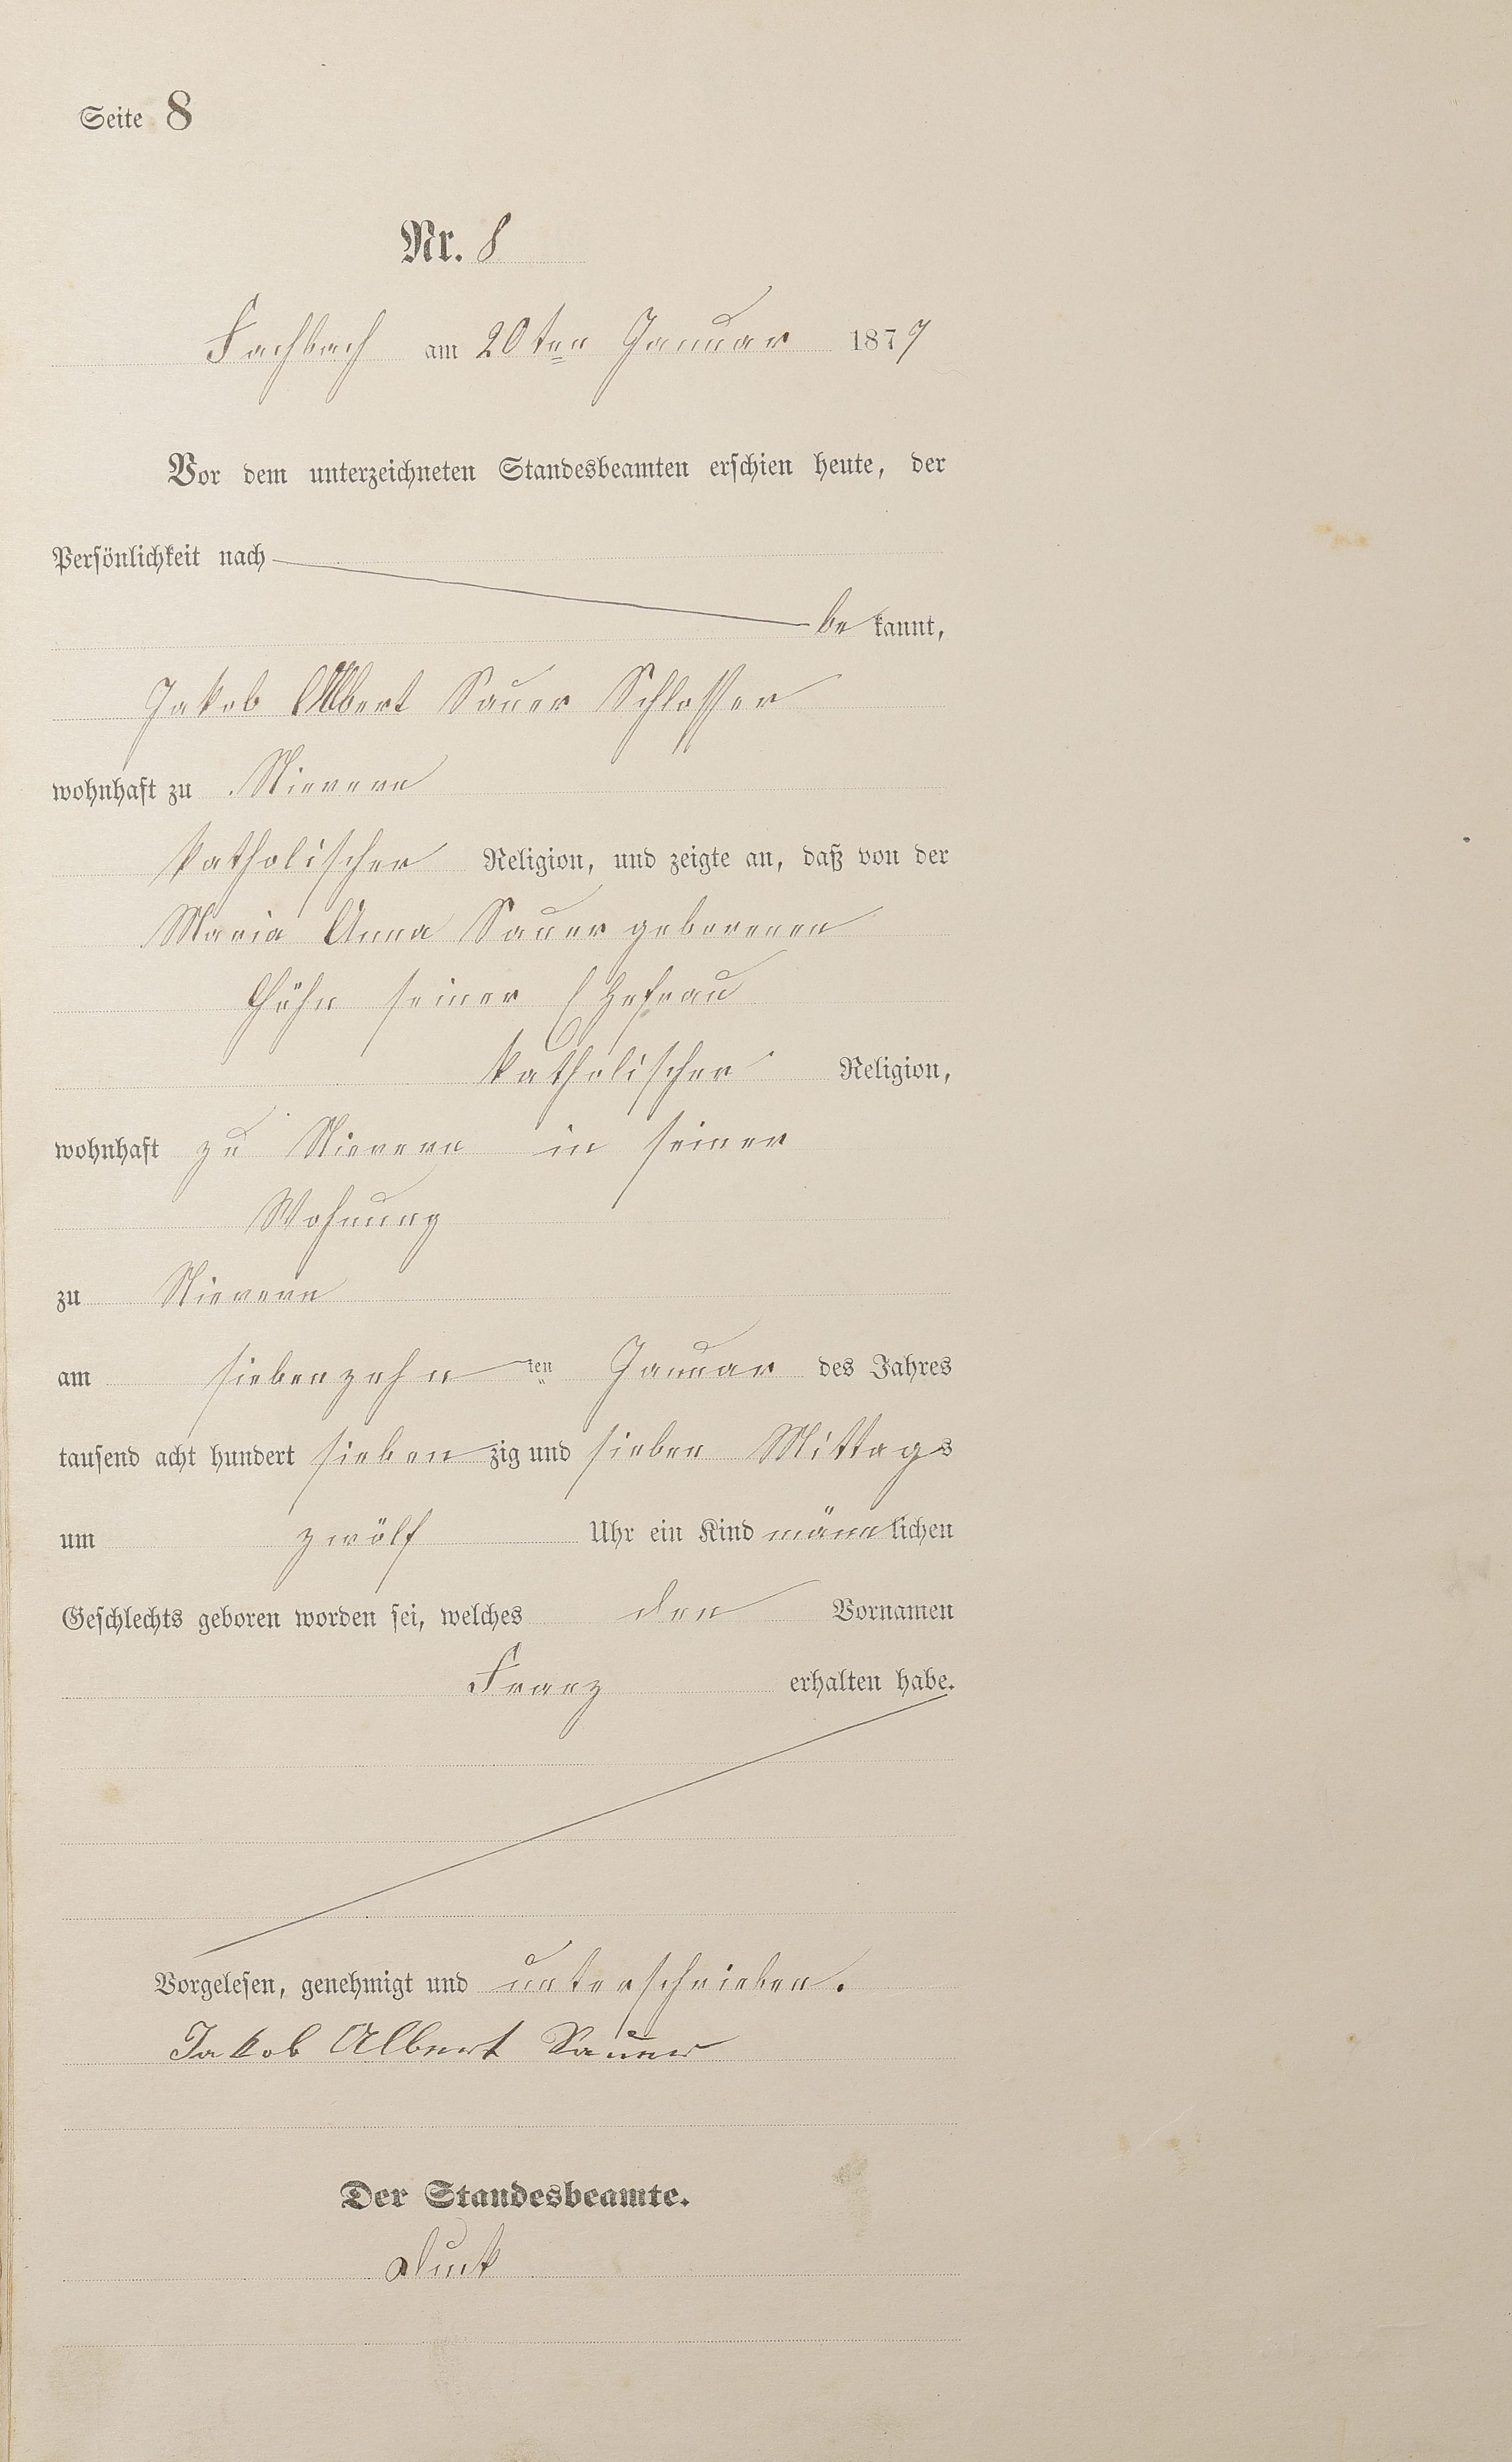 Seite 8
Nr. 8
Fachbach am 20ten Januar 1877
Vor dem unterzeichneten Standesbeamten erschien heute, der
Persönlichkeit nach
be kannt,
Jakob Albert Sauer Schlosser
wohnhaft zu Nievern
katholischer Religion, und zeigte an, daß von der
Maria Anna Sauer geborenen
Höhn seiner Ehefrau
katholischer Religion,
wohnhaft zu Nievern in seiner
Wohnung
zu Nievern
am siebenzehn ten Januar des Jahres
tausend acht hundert sieben zig und sieben Mittags
um zwölf Uhr ein Kind männ lichen
Geschlechts geboren worden sei, welches den Vornamen
Franz erhalten habe.
Vorgelesen, genehmigt und unterschrieben.
Jakob Albert Sauer
Der Standesbeamte.